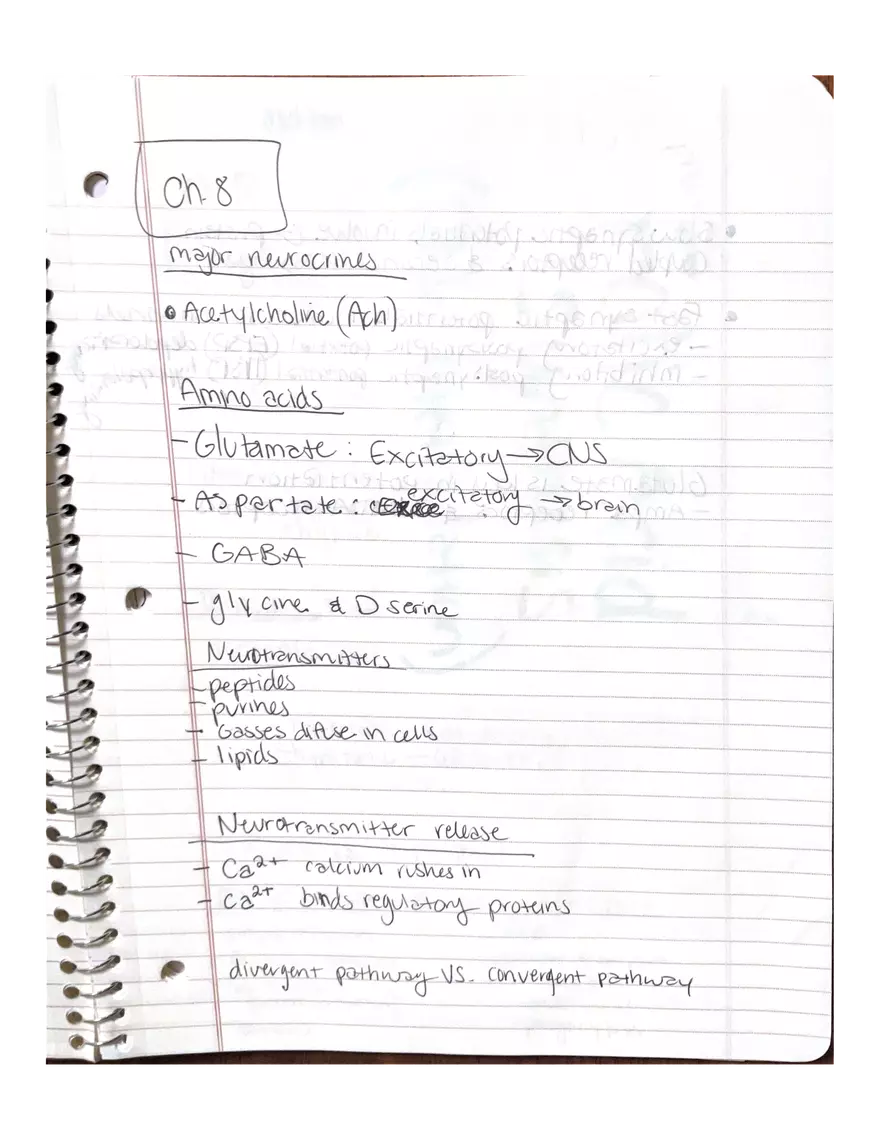 Ch. 8
major neurocrines
• Acetylcholine (Ach)
Amino acids
- Glutamate : Excitatory → CNS
- Aspartate : excitatory → brain
- GABA
- glycine & D serine
Neurotransmitters
- peptides
- purines
- Gasses difuse in cells
- lipids
Neurotransmitter release
- Ca²⁺ calcium rushes in
- Ca²⁺ binds regulatory proteins
divergent pathway VS. convergent pathway